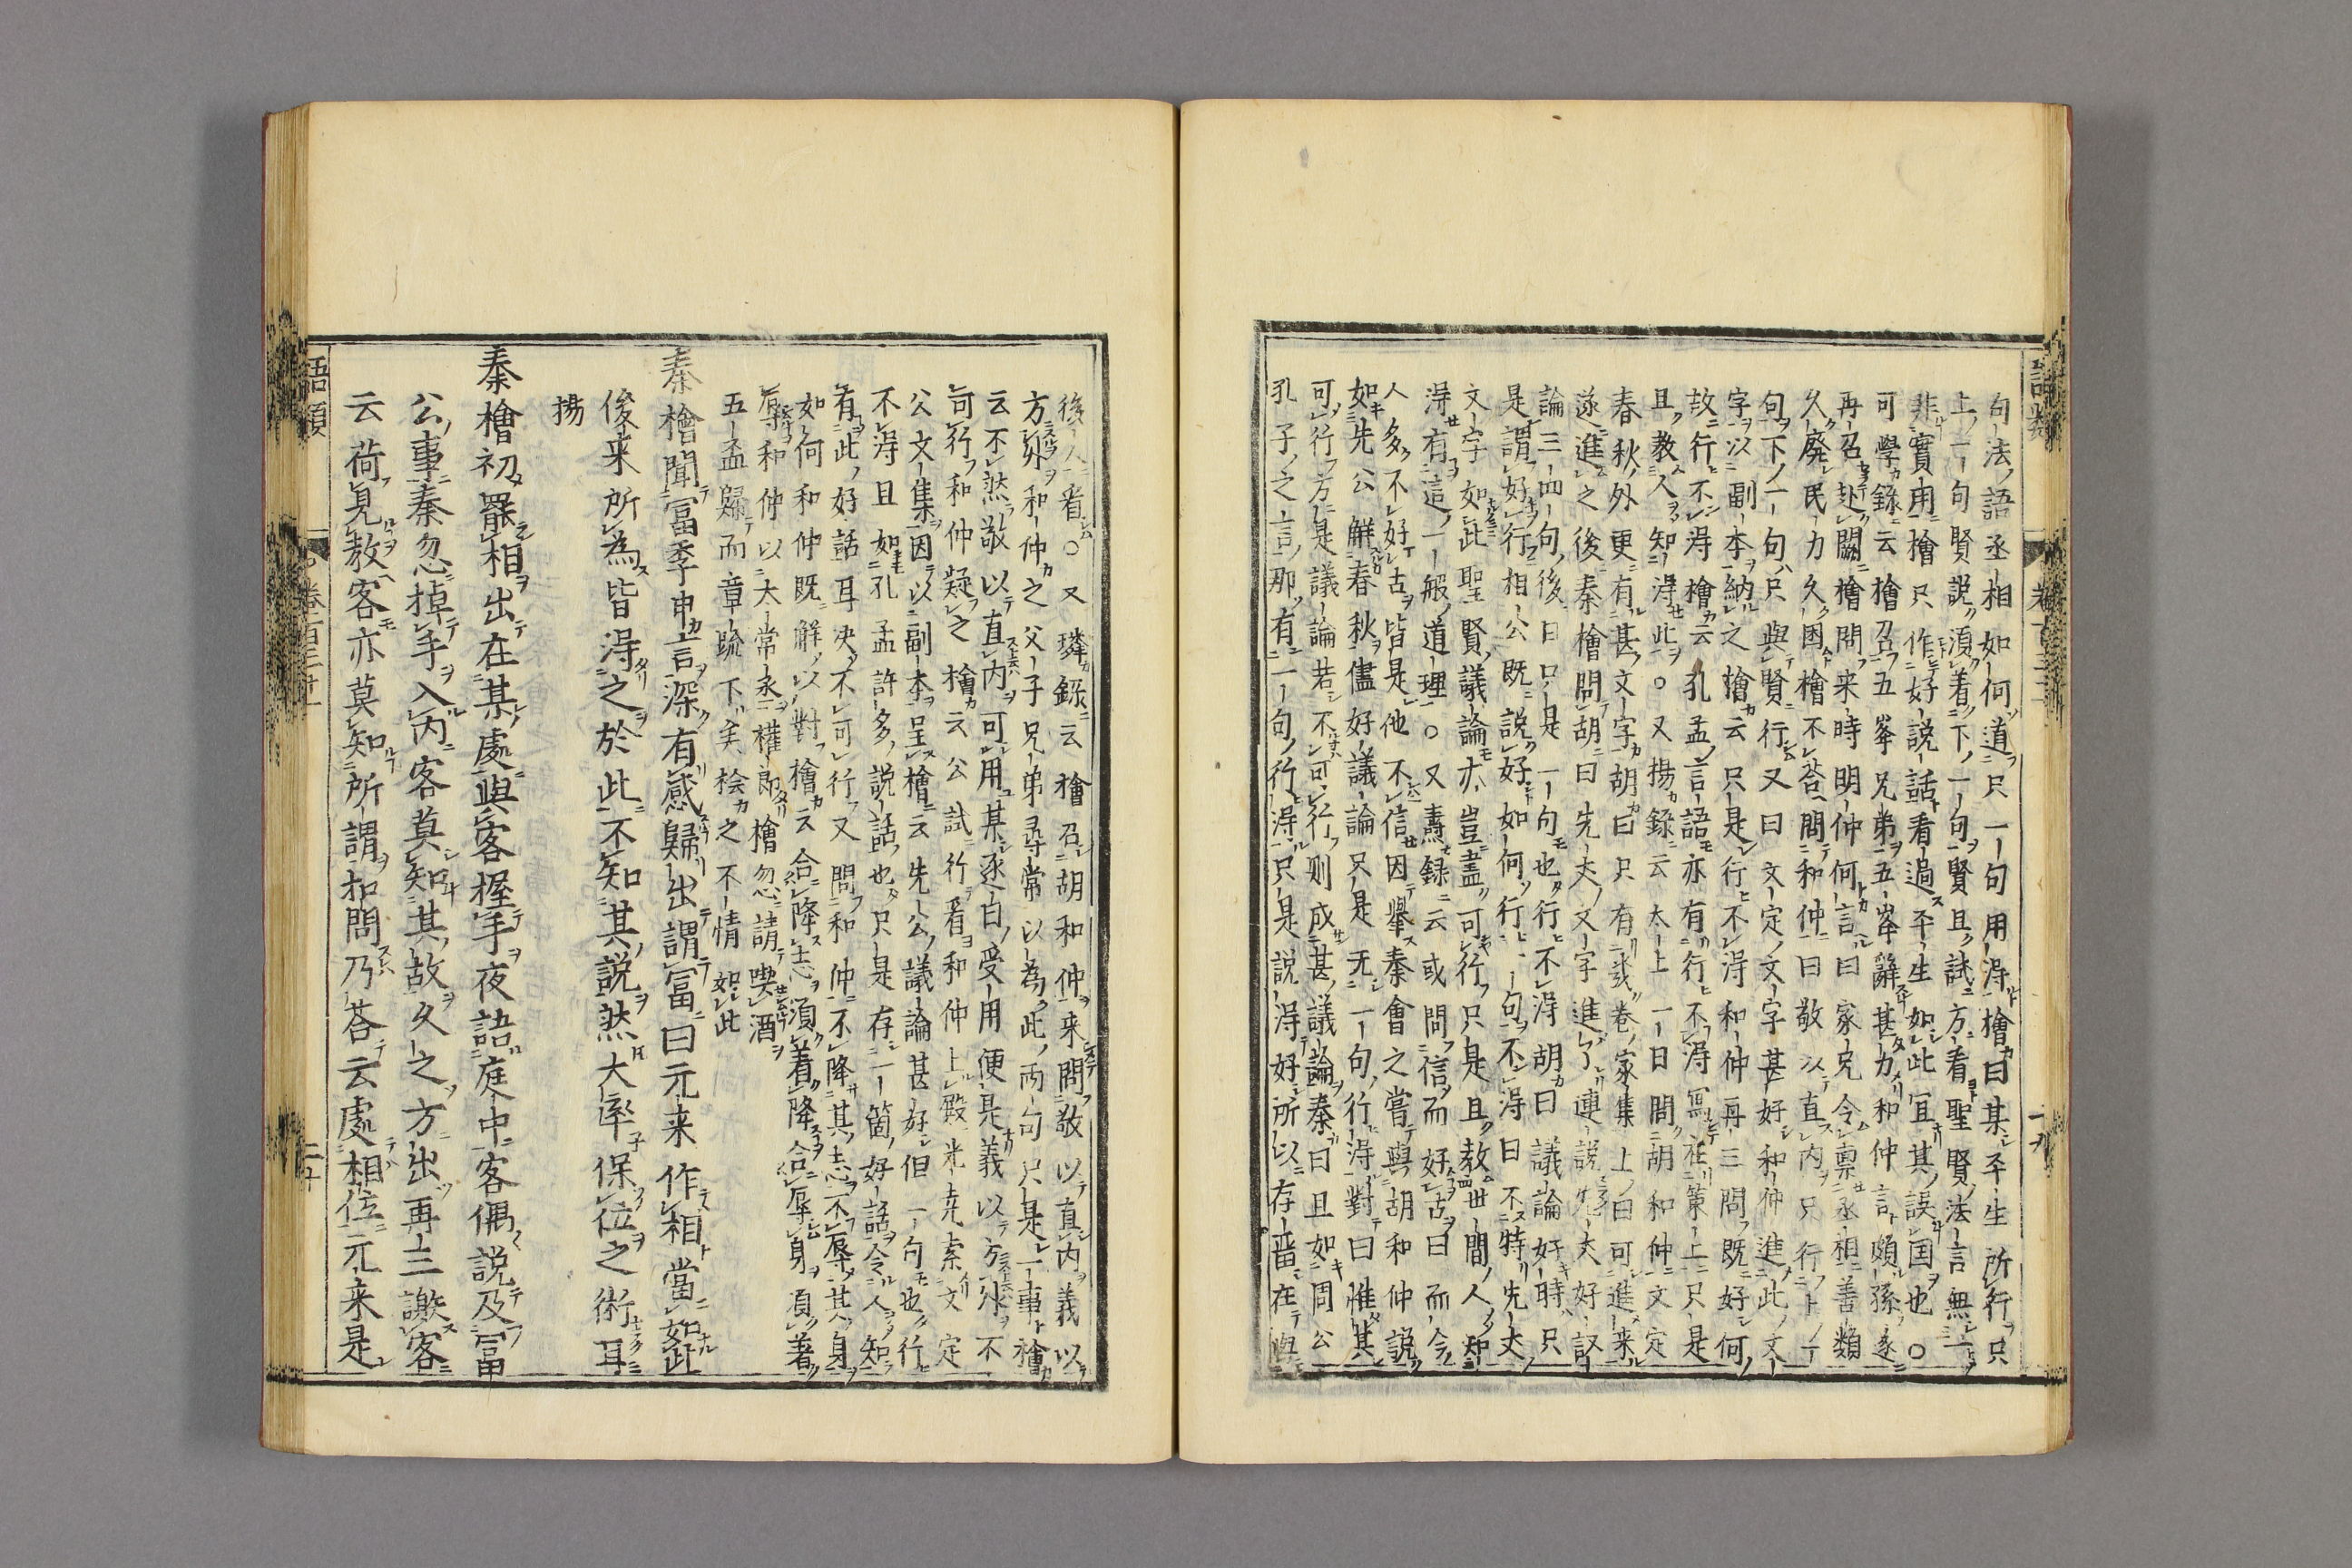 語類 卷百三十一 十九
句法語丞相如何道只一句用得檜曰某平生所行只
上一句賢説須着下一句賢且試方看聖賢法言無一
非實用檜只作好説話看過平生如此宜其誤国也○
可學録云檜召五峯兄弟五峯辭甚力和仲言頗孫遂
再召赴闕檜問来時明仲何言曰家兄令禀丞相善類
久廃民力久困檜不荅問和仲曰敬以直内只行一
句下一句只與賢行又曰文定文字甚好和仲進此文
字以副本納之檜云只是行不得和仲再三問既好何
故行不得檜云孔孟言語亦有行不得寫在策上只是
且教人知得此○又揚録云太上一日問胡和仲文定
春秋外更有甚文字胡曰只有幾卷家集上曰可進来
遂進之後秦檜問胡曰先夫文字進了連説先夫好議
論三四句後曰只是一句也行不得胡曰議論好時只
是謂好行相公既説好如何行一句不得曰不特先夫
文字如此聖賢議論亦豈盡可行只是且教世間人知
得有這一般道理○又燾録云或問信而好古曰而今
人多不好古皆是他不信因擧秦會之嘗與胡和仲説
如先公解春秋儘好議論只是无一句行得對曰惟其
可行方是議論若不可行则成甚議論秦曰且如周公
孔子之言那有一句行得只是説得好所以存畱在與
後人看○又璘録云檜召胡和仲来問敬以直内義以
方外和仲之父子兄弟尋常以為此両句只是一事檜
云不然敬以直内可用某逐日受用便是義以方外不
可行和仲疑之檜云公試行看和仲上殿光尭索文定
公文集因以副本呈檜云先公議論甚好但一句也行
不得且如孔孟許多説話也只是存一箇好話令人知
有此好話耳决不可行又問和仲不降其志不辱其身
如何和仲既解以對檜云合降志須着降合辱身須著
辱和仲以太常丞權郎檜忽請喫酒
五盃歸而章疏下矣桧之不情如此
秦檜聞富季申言深有感歸出謂富曰元来作相當如此
後来所為皆得之於此不知其説然大率保位之術耳
揚
秦檜初罷相出在某處與客握手夜語庭中客偶説及富
公事秦忽掉手入内客莫知其故久之方出再三謝客
云荷見教客亦莫知所謂扣問乃荅云處相位元来是
語類 卷百三十一 二十